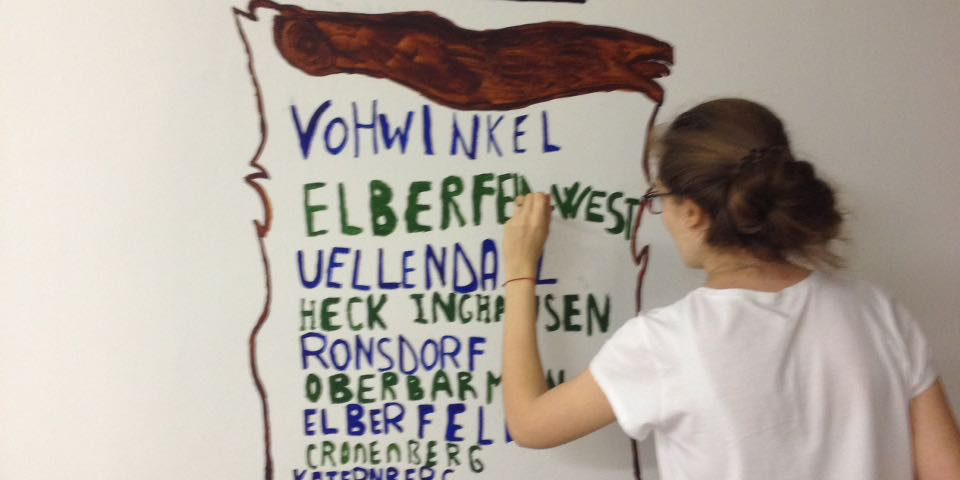 VOHWINKEL
WEST
UELLENDAHL
HECKINGHAUSEN
RONSDORF
OBERBARMEN
CRONENBERG
KATERNBERG